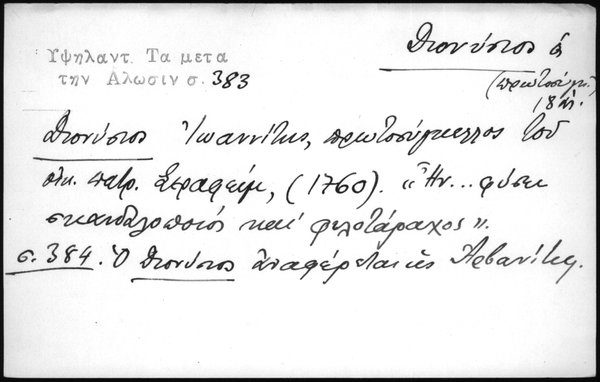 Υψηλαντ. Τα μετα
την Αλωσιν σ. 383
Διονύσιος ὁ
(πρωτοσύγκ.)
18 αἰ.
Διονύσιος Ἰωαννίτης, πρωτοσύγκελλος τοῦ
οἰκ. πατρ. Σεραφείμ, (1760). "Ἦν ... φύσει
σκανδαλοποιός καί φιλοτάραχος".
σ. 384. Ὁ Διονύσιος ἀναφέρεται ὡς Ἀρβανίτης.